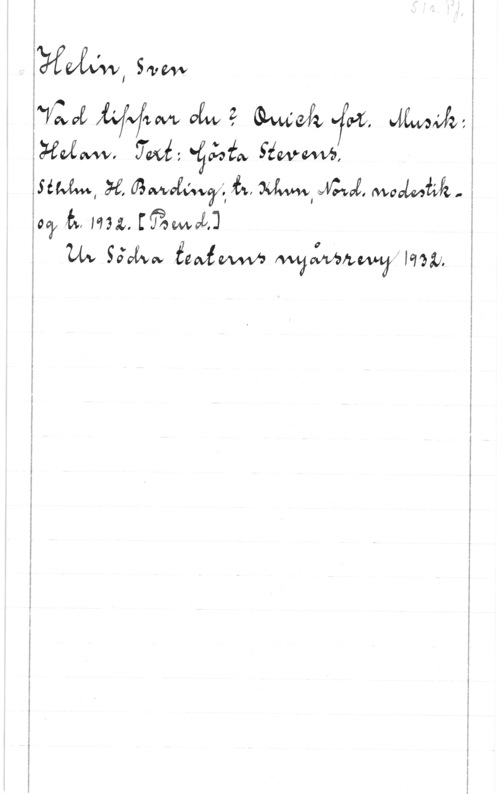 S l a. Pf.
Helin, Sven
Vad tippar du? Quick fox. Musik:
Helan. Text: Gösta Stevens.
Sthlm, H. Barding; tr. Khvn, Nord. nodestik-
og tr. 1932. [Pseud.]
Ur Södra teaterns nyårsrevy 1932.